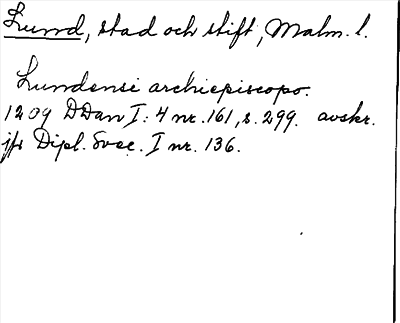 Lund, stad och stift, Malm. l.
Lundensi archiepiscopo.
1209 DDan I: 4 nr. 161, s. 299. avskr.
jfr Dipl. Svec. I nr. 136.